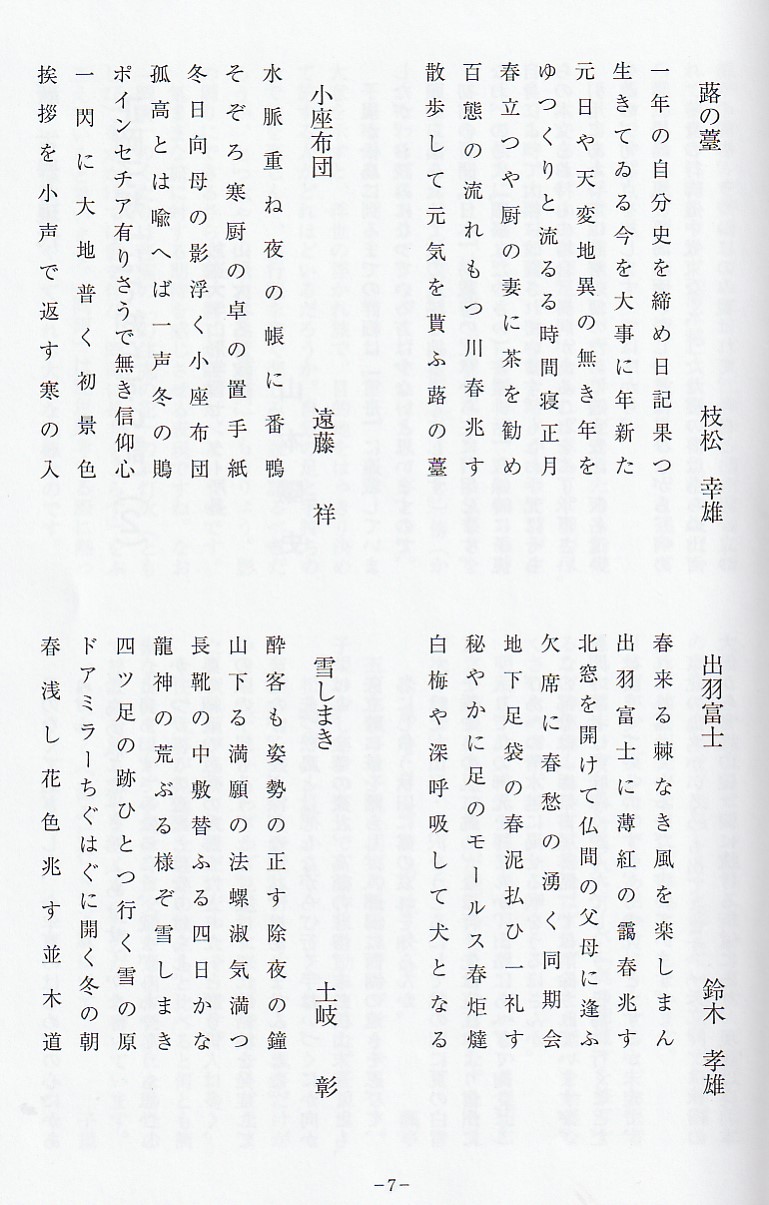 蕗の薹
枝松 幸雄
一年の自分史を締め日記果つ
生きてゐる今を大事に年新た
元日や天変地異の無き年を
ゆつくりと流るる時間寝正月
春立つや厨の妻に茶を勧め
百態の流れもつ川春兆す
散歩して元気を貰ふ蕗の薹
小座布団
遠藤 祥
水脈重ね夜の帳に番鴨
そぞろ寒厨の卓の置手紙
冬日向母の影浮く小座布団
孤高とは喩へば一声冬の鵙
ポインセチア有りさうで無き信仰心
一閃に大地普く初景色
挨拶を小声で返す寒の入
出羽富士
鈴木 孝雄
春来る棘なき風を楽しまん
出羽富士に薄紅の靄春兆す
北窓を開けて仏間の父母に逢ふ
欠席に春愁の湧く同期会
地下足袋の春泥払ひ一礼す
秘やかに足のモールス春炬燵
白梅や深呼吸して犬となる
雪しまき
土岐 彰
酔客も姿勢の正す除夜の鐘
山下る満願の法螺淑気満つ
長靴の中敷替ふる四日かな
龍神の荒ぶる様ぞ雪しまき
四ツ足の跡ひとつ行く雪の原
ドアミラーちぐはぐに開く冬の朝
春浅し花色兆す並木道
－7－